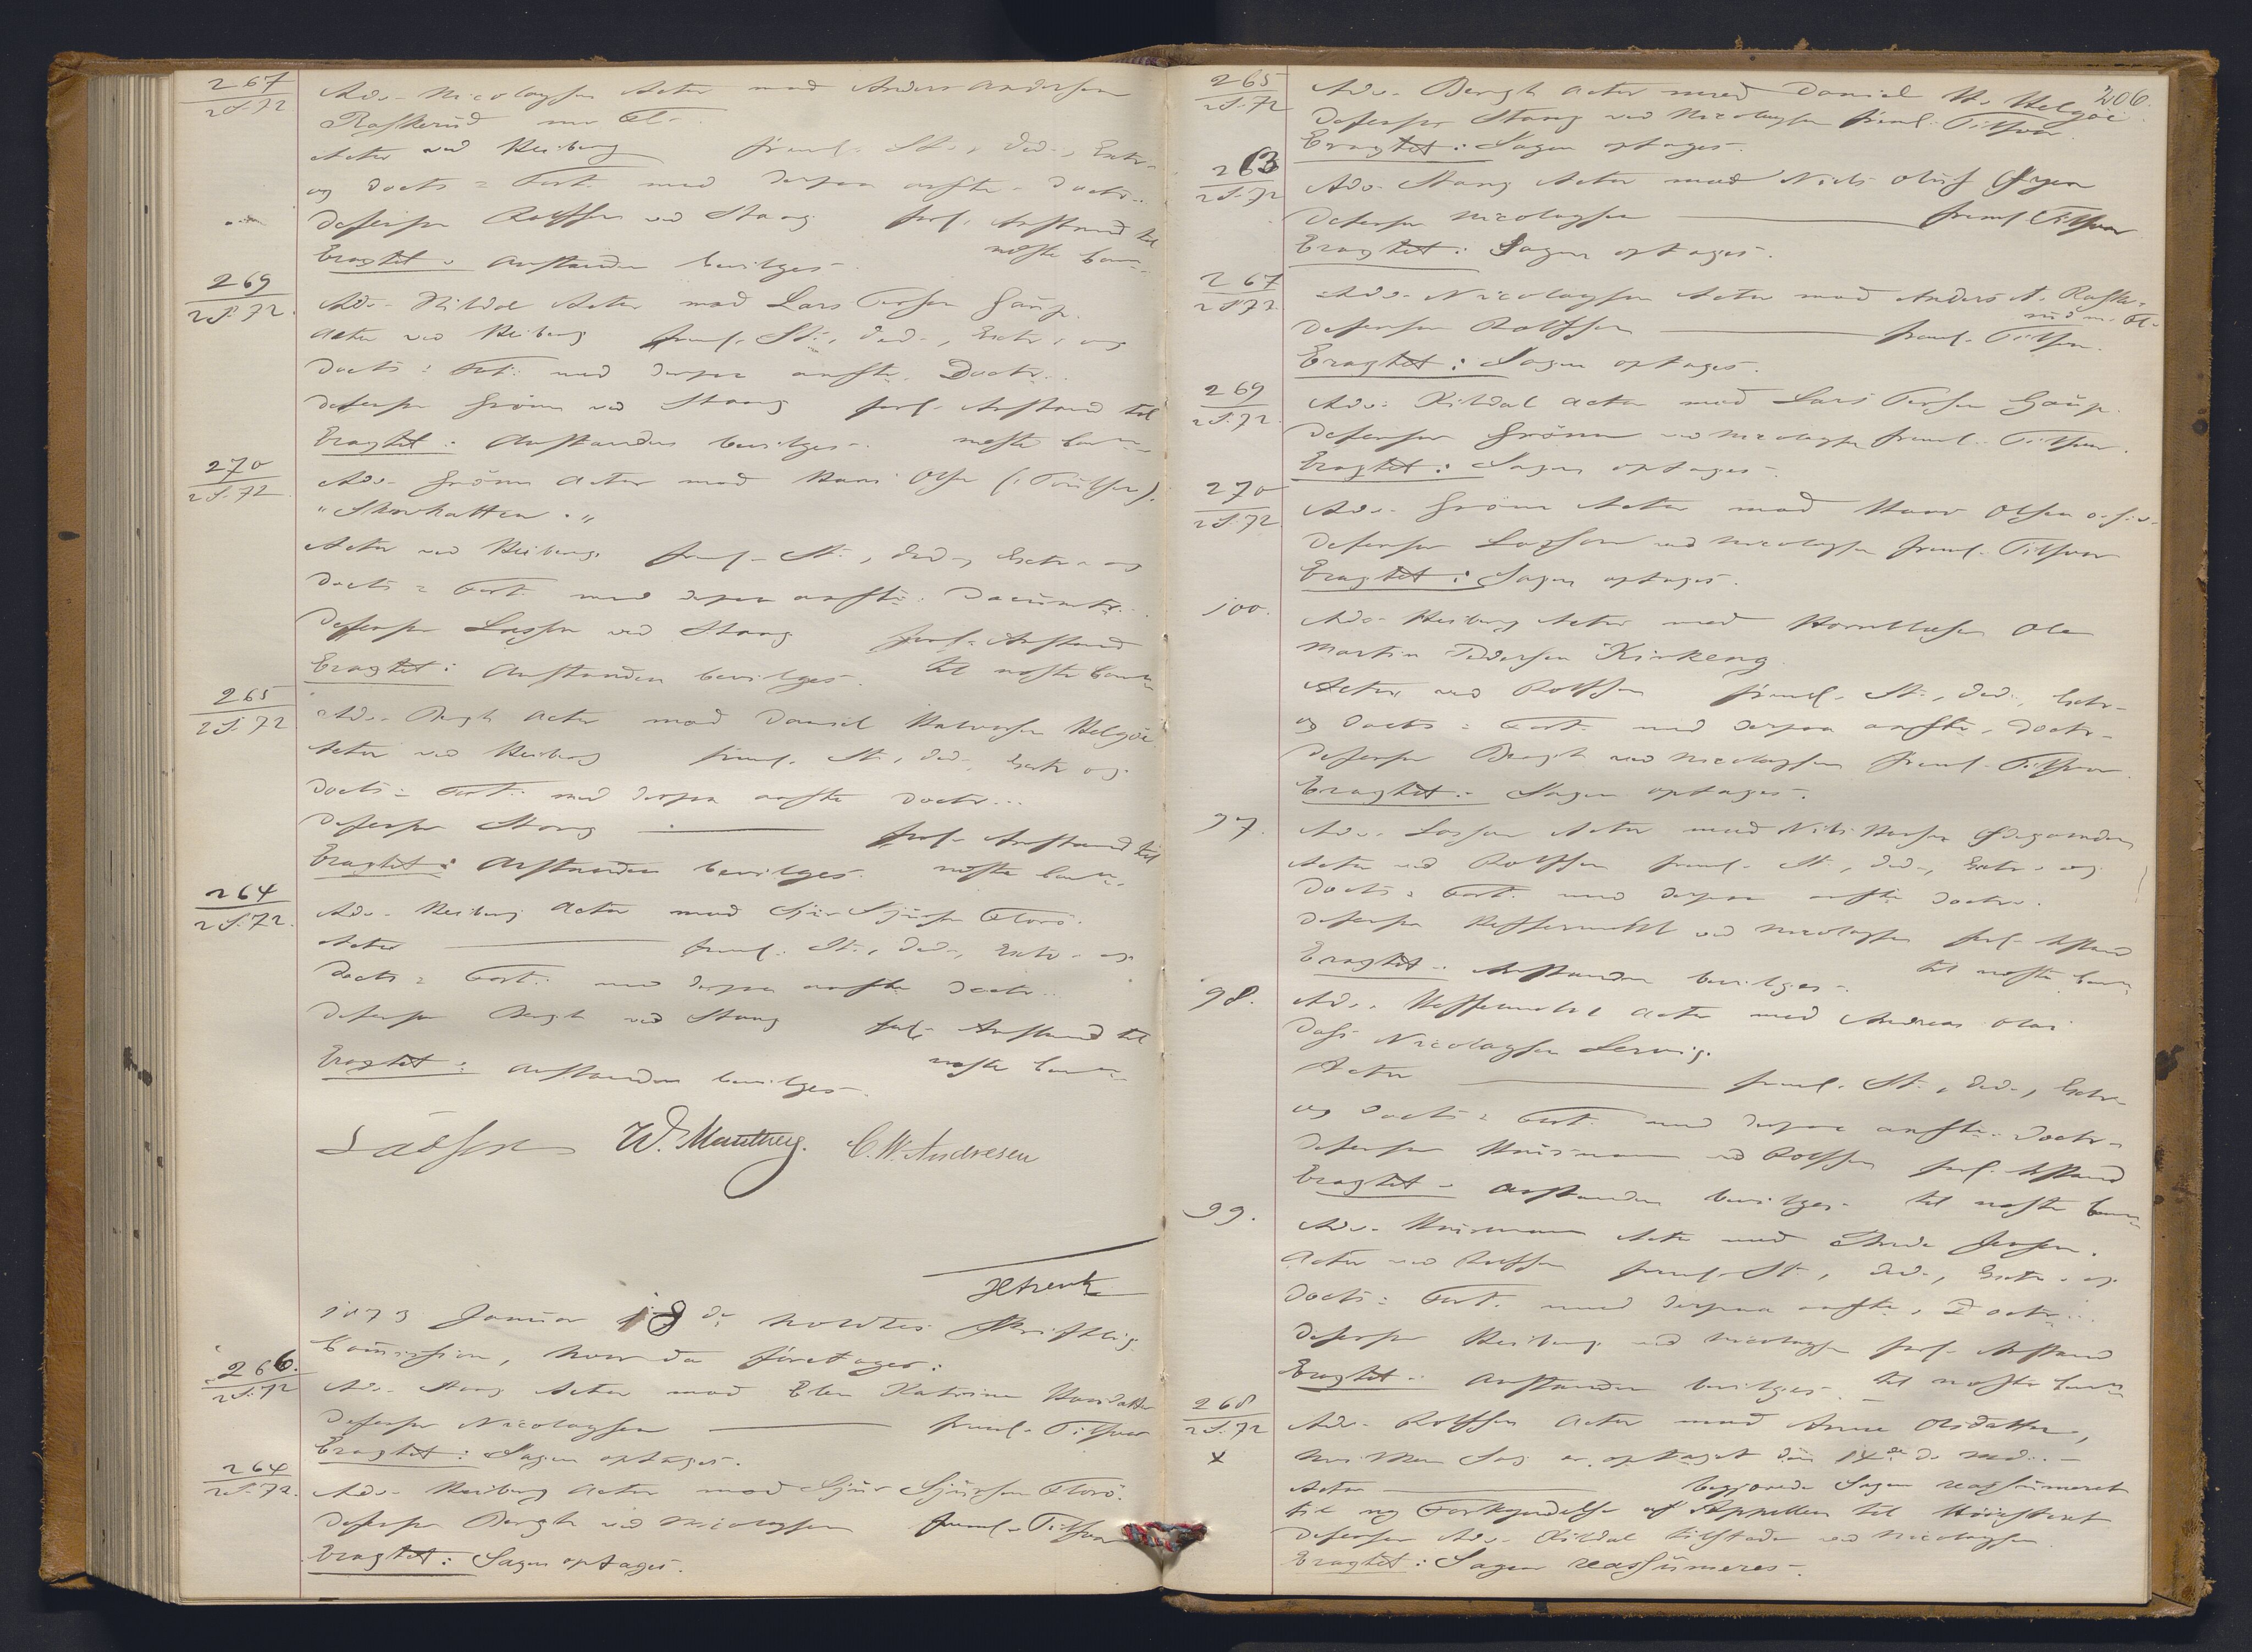 267
2 S. 72
Adv. Nicolaysen Actor mod Anders Andersen
Raskerud m. Fl.
Actor ved Heiberg freml. St., Ded., Extr.
og Docts: Fort. med derpaa anfte. Doctr.
Defensor Rolfsen ved Stang forl. Anstand til
Eragtet: Anstanden bevilges. næste
269
2 S. 72.
Adv. Kildal Actor mod Lars Larsen Gaup.
Actor ved Heiberg freml. St., Ded., Extr. og
Docts: Fort. med derpaa anfte. Doctr.
Defensor Grönn ved Stang forl. Anstand til
Eragtet: Anstanden bevilges. næste
270
2 S. 72
Adv. Grönn Actor mod Hans Olsen
"Skovkatten."
Actor ved Heiberg freml. St., Ded., Extr. og
Docts: Fort. med derpaa anfte. Documtr.
Defensor Lassen ved Stang forl. Anstand
Eragtet: Anstanden bevilges. til næste
265
2 S. 72
Adv. Bergh Actor mod Daniel Halvorsen Helgöe
Actor ved Heiberg freml. St., Ded., Extr. og
Docts: Fort. med derpaa anfte Doctr.
Defensor Stang — forl. Anstand til
Eragtet: Anstanden bevilges. næste
264
2 S. 72.
Adv. Heiberg Actor mod Sjur Sjursen Florö.
Actor — freml. St., Ded., Extr. og
Docts: Fort. med derpaa anfte Doctr.
Defensor Bergh ved Stang forl. Anstand til
Eragtet: Anstanden bevilges. næste
Lassen C. W. Andresen
1873 Januar 18de holdtes Skriftlig
Commission, hvor da foretages:
266.
2 S. 72
Adv. Stang Actor mod Elen Katrine Hansdatter
Defensor Nicolaysen — freml. Tilsvar
Eragtet: Sagen optages.
264
2 S. 72.
Adv. Heiberg Actor mod Sjur Sjursen Florö.
Defensor Bergh ved Nicolaysen freml. Tilsvar
Eragtet: Sagen optages.
206.
265
2 S. 72
Adv. Bergh Actor mod Daniel H. Helgöe.
Defensor Stang ved Nicolaysen freml. Tilsvar
Eragtet: Sagen optages.
263
2 S. 72
Adv. Stang Actor mod Niels Oluf
Defensor Nicolaysen — freml. Tilsvar
Eragtet: Sagen optages.
267
2 S 72.
Adv. Nicolaysen Actor mod Anders A. Raske-
rud m. Fl.
Defensor Rolfsen — freml. Tilsvar.
Eragtet: Sagen optages.
269
2 S. 72.
Adv. Kildal Actor mod Lars Larsen Gaup.
Defensor Grönn ved Nicolaysen freml. Tilsvar.
Eragtet: Sagen optages.
270
2 S 72
Adv. Grönn Actor mod Hans Olsen
Defensor Lassen ved Nicolaysen freml. Tilsvar
Eragtet: Sagen optages.
100.
Adv. Heiberg Actor mod Hornblæser Ole
Martin Pedersen Kirkeng.
Actor ved Rolfsen freml. St., Ded., Extr.
og Docts: Fort. med derpaa anfte. Doctr.
Defensor Bergh ved Nicolaysen freml. Tilsvar
Eragtet: Sagen optages.
97.
Adv. Lassen Actor mod Nils Ödegaarden
Actor ved Rolfsen freml. St., Ded., Extr. og
Docts: Fort. med derpaa anfte Doctr.
Defensor Heffermehl ved Nicolaysen forl. Anstand
Eragtet: Anstanden bevilges. til næste
98.
Adv. Heffermehl Actor mod Andreas Olai
Dass Nicolaysen
Actor — freml. St., Ded., Extr.
og Docts: Fort. med derpaa anfte. Doctr.
Defensor ved Rolfsen forl. Anstand
Eragtet: Anstanden bevilges. til næste
99.
Adv. Actor mod Jensen.
Actor ved Rolfsen freml. St., Ded., Extr. og
Docts: Fort. med derpaa anfte. Doctr.
Defensor Heiberg ved Nicolaysen forl. Anstand
Eragtet: Anstanden bevilges. til næste
268
2 S. 72
x
Adv. Rolfsen Actor mod Anne Olsdatter,
hvis Sag er optaget den 14de d. Md.
Actor — begjærede Sagen reassumeret
til ny Forkyndelse af Appellen til Höiesteret
Defensor Adv. Kildal tilstede ved Nicolaysen
Eragtet: Sagen reassumeres.